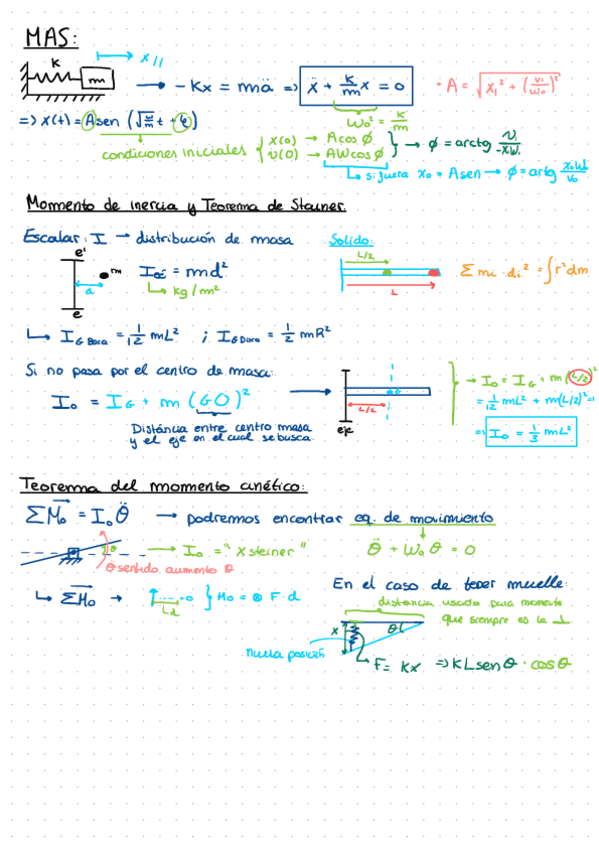 MAS:
K m x //
→ - Kx = mä ⇒ ẍ + k/m x = 0 · A = √(x₁² + (v₁/w₀)²)
w₀² = k/m
⇒ x(t) = A sen (√(k/m) t + φ)
condiciones iniciales { x(0) → A cos ϕ
v(0) → AW cos ϕ } → ϕ = arctg v₁/-xW₁
↳ si fuera x₀ = A sen → ϕ = artg x₀W₀/v₀
Momento de inercia y Teorema de Stainer.
Escalar: I → distribución de masa
Solido:
e'
m
d
e
I = md²
↳ kg/m²
L/2
L
Σ mi · di² = ∫r² dm
↳ I_G Barra = 1/12 mL² ; I_G Disco = 1/2 mR²
Si no pasa por el centro de masa:
I₀ = I_G + m (GO)²
Distancia entre centro masa
y el eje en el cual se busca.
L/2
G
eje
→ I₀ = I_G + m (L/2)²
= 1/12 mL² + m(L/2)² =
⇒ I₀ = 1/3 mL²
Teorema del momento cinético:
ΣM₀ = I₀ θ̈ → podremos encontrar eq. de movimiento
θ → I₀ = " x steiner "
θ̈ + W₀ θ = 0
θ sentido aumento θ
↳ ΣM₀ → d } M₀ = ⊗ F·d
En el caso de tener muelle:
distancia usada para momento
que siempre es la ⊥
x θ
nueva posición
F = Kx ⇒ K L sen θ · cos θ